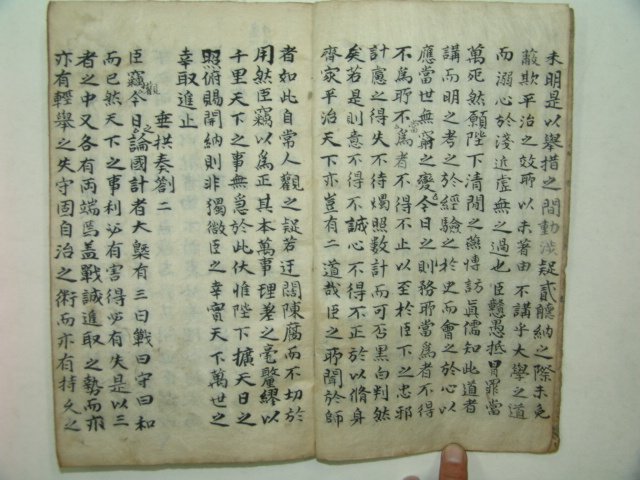 未明是以舉措之間動涉疑貳聽納之際未免
蔽欺平治之效所以未著由不講乎大學之道
而溺心於淺近虛無之過也臣戇愚抵冒罪當
萬死然願陛下清閒之燕博訪眞儒知此道者
講而明之考之於經驗之於史而會之於心以
應當世無窮之變今日之則務所當爲者不得
不爲所不當爲者不得不止以至於臣下之忠邪
計慮之得失不待燭照數計而可否黑白判然
矣若是則意不得不誠心不得不正於以脩身
齊家平治天下亦豈有二道哉臣之所聞於師
者如此自常人觀之疑若迂闊陳腐而不切於
用然臣竊以爲正其本萬事理差之毫釐繆以
千里天下之事無急於此伏惟陛下擴天日之
照俯賜開納則非獨微臣之幸實天下萬世之
幸取進止
垂拱奏劄二
臣竊觀今日之論國計者大槩有三曰戰曰守曰和
而已然天下之事利必有害得必有失是以三
者之中又各有兩端焉盖戰誠進取之勢而亦
亦有輕擧之失守固自治之術而亦有持久之